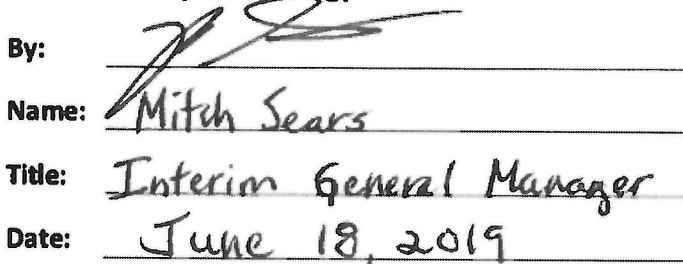 By:
Name: Mitch Sears
Title: Interim General Manager
Date: June 18, 2019